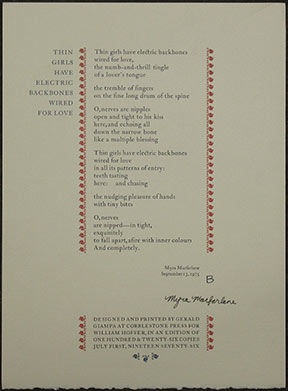 THIN
GIRLS
HAVE
ELECTRIC
BACKBONES
WIRED
FOR LOVE
Thin girls have electric backbones
wired for love,
the numb-and-thrill tingle
of a lover's tongue
the tremble of fingers
on the fine long drum of the spine
O, nerves are nipples
open and tight to his kiss
here, and echoing all
down the narrow bone
like a multiple blessing
Thin girls have electric backbones
wired for love
in all its patterns of entry:
teeth tasting
here: and chasing
the nudging pleasure of hands
with tiny bites
O, nerves
are nipped—in tight,
exquisitely
to fall apart, afire with inner colours
And completely.
Myra Macfarlane
September 13, 1975
B
Myra Macfarlane
DESIGNED AND PRINTED BY GERALD
GIAMPA AT COBBLESTONE PRESS FOR
WILLIAM HOFFER, IN AN EDITION OF
ONE HUNDRED & TWENTY-SIX COPIES
JULY FIRST, NINETEEN SEVENTY-SIX